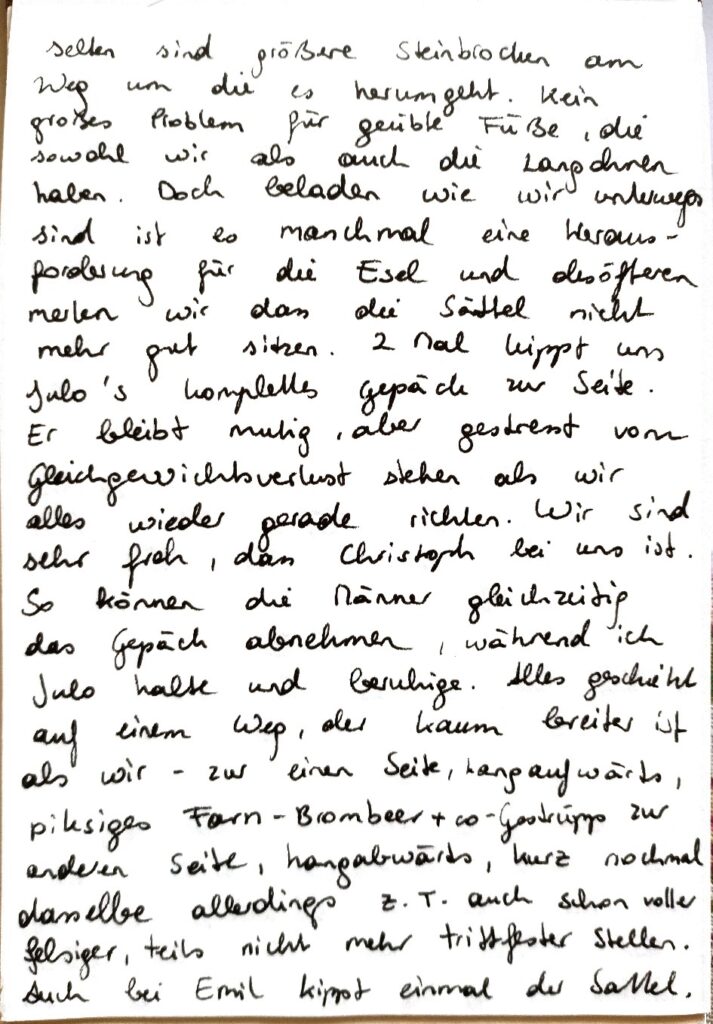 selten sind größere Steinbrocken am
Weg um die es herumgeht. Kein
großes Problem für geübte Füße, die
sowohl wir als auch die Langohren
haben. Doch beladen wie wir unterwegs
sind ist es manchmal eine Heraus-
forderung für die Esel und desöfteren
merken wir dass die Sättel nicht
mehr gut sitzen. 2 Mal kippt uns
Julo's komplettes Gepäck zur Seite.
Er bleibt mutig, aber gestresst vom
Gleichgewichtsverlust stehen als wir
alles wieder gerade richten. Wir sind
sehr froh, dass Christoph bei uns ist.
So können die Männer gleichzeitig
das Gepäck abnehmen, während ich
Julo halte und beruhige. Alles geschieht
auf einem Weg, der kaum breiter ist
als wir - zur einen Seite, hangaufwärts,
piksiges Farn-Brombeer+co-Gestrüpp zur
anderen Seite, hangabwärts, kurz nochmal
dasselbe allerdings z.T. auch schon voller
felsiger, teils nicht mehr trittfester Stellen.
Auch bei Emil kippt einmal der Sattel.